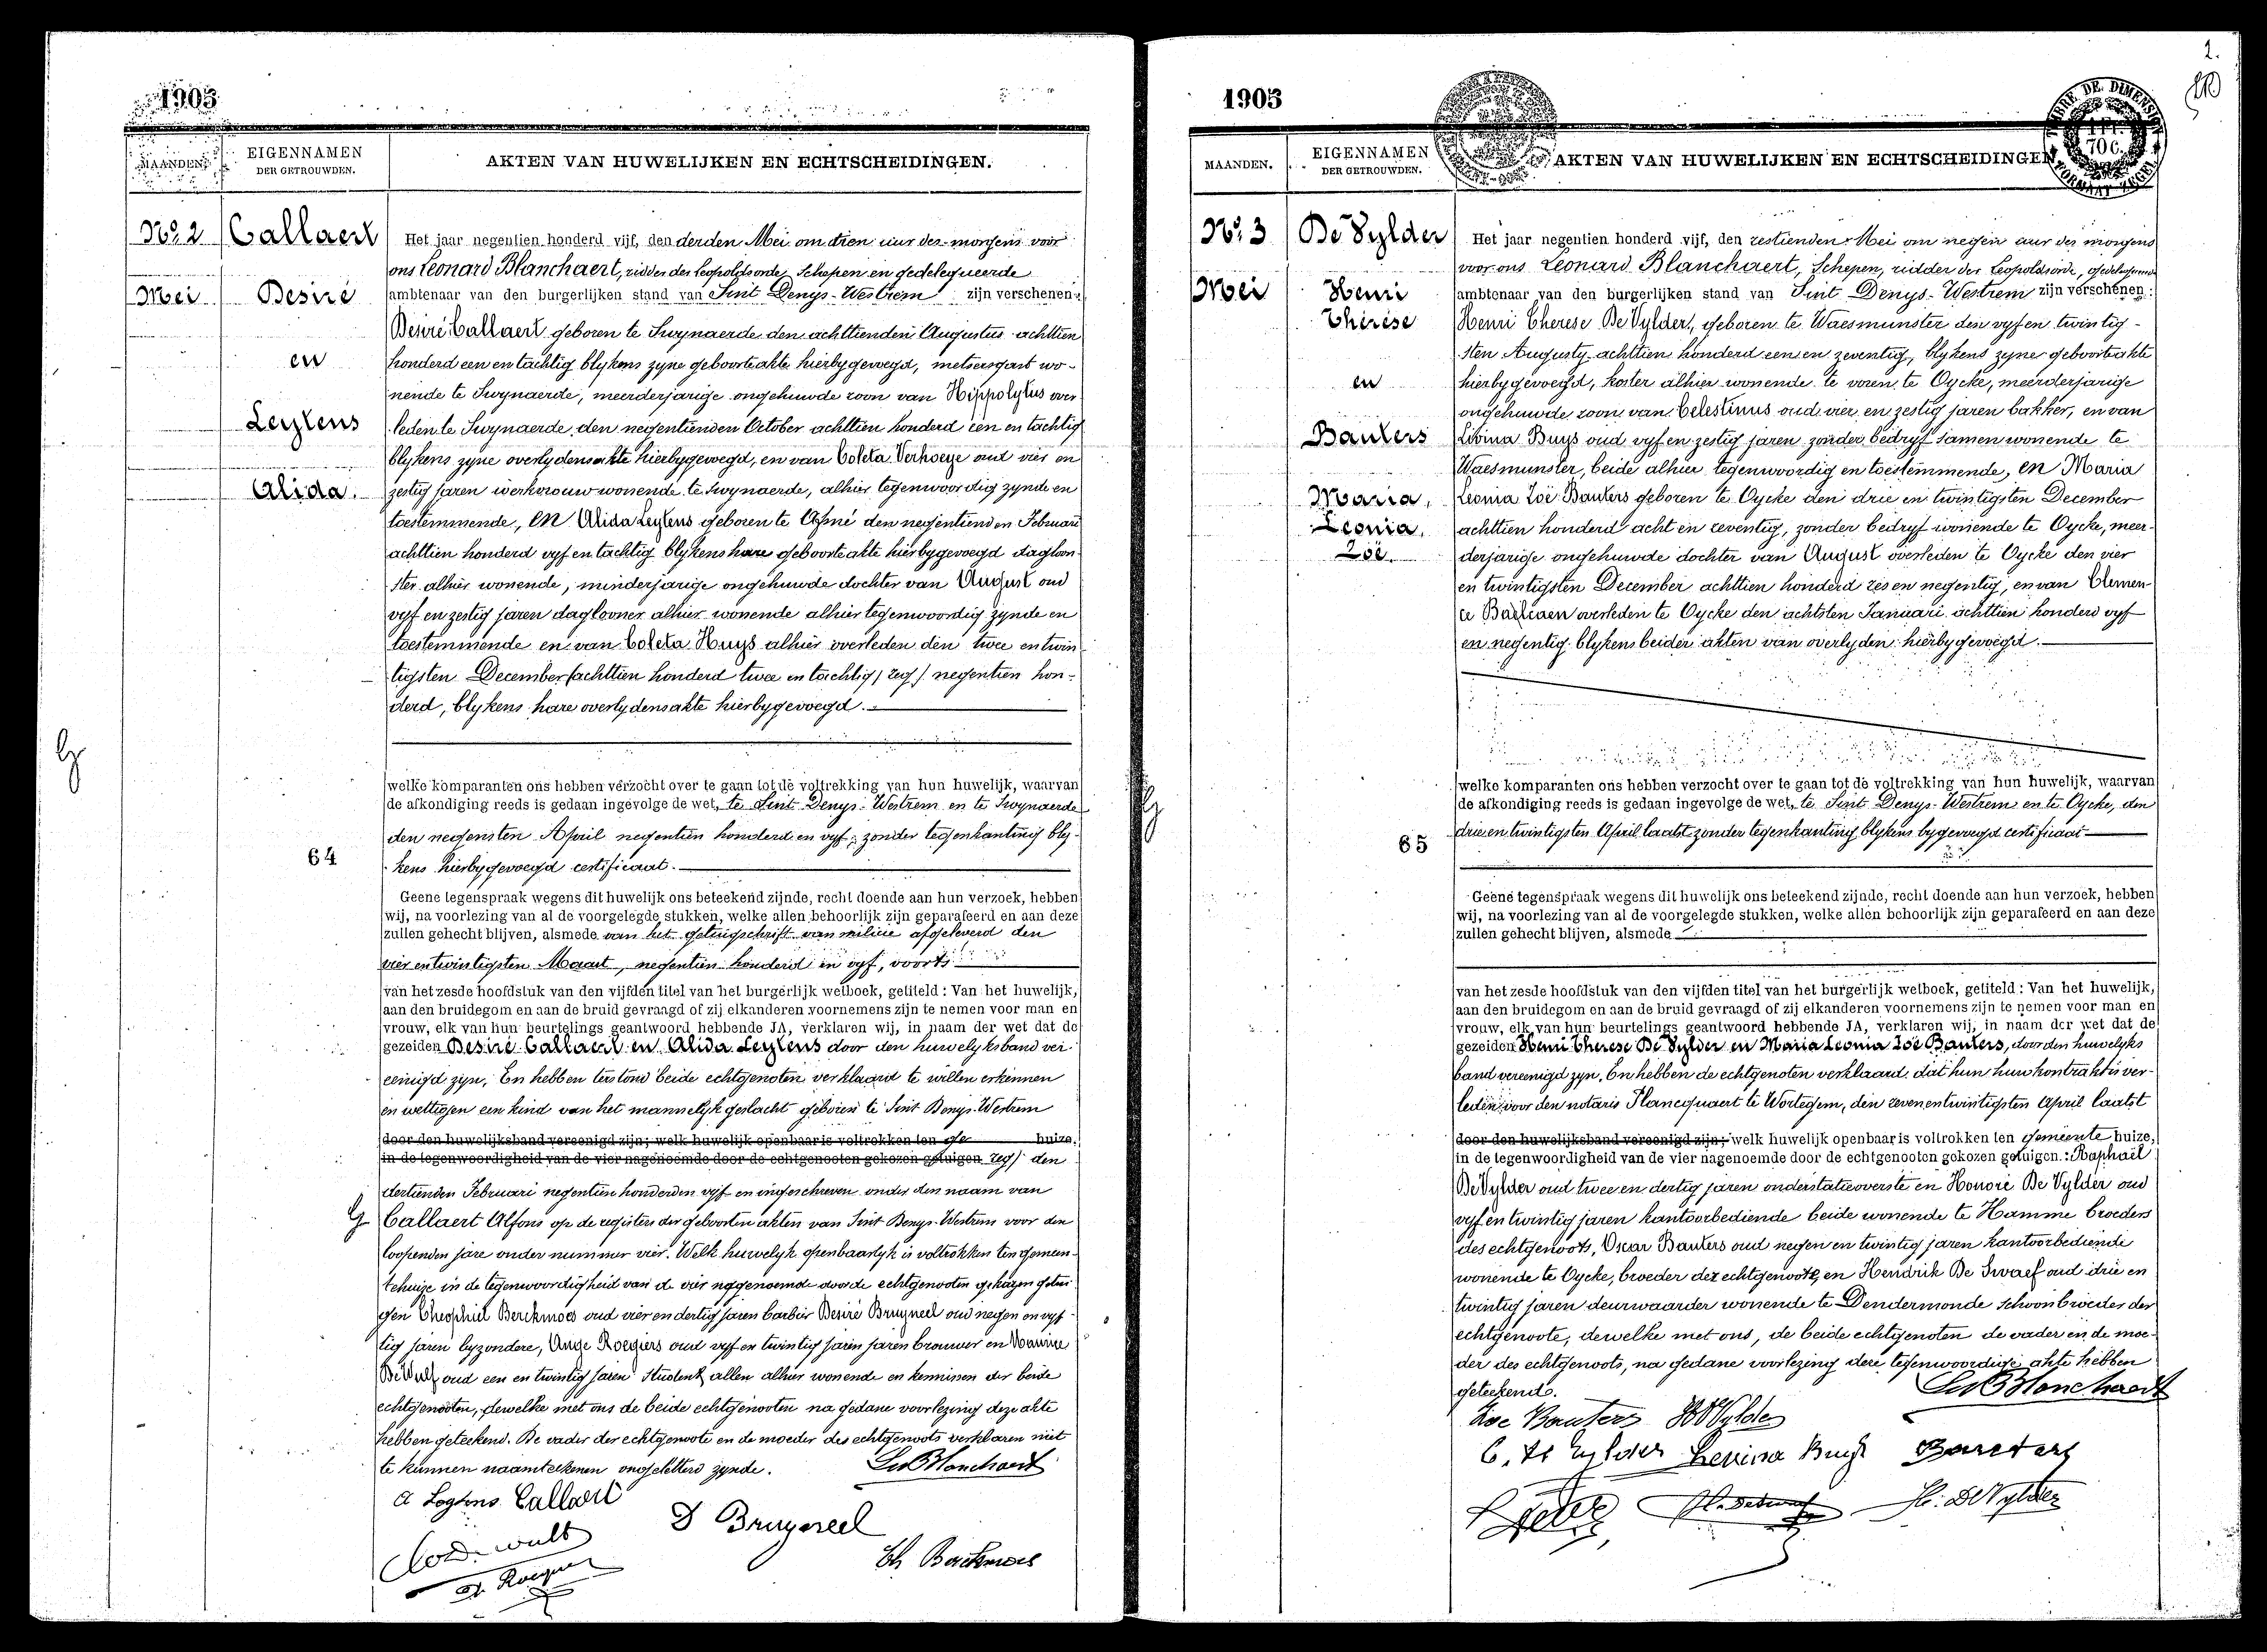 1905
MAANDEN.
EIGENNAMEN
DER GETROUWDEN.
AKTEN VAN HUWELIJKEN EN ECHTSCHEIDINGEN.
No. 2
Callaert
Mei
Desiré
en
Leytens
Alida.
Het jaar negentien honderd vijf, den derden Mei om tien uur des morgens voor
ons Leonard Blanchaert, ridder der Leopoldsorde, Schepen en gedelegueerde
ambtenaar van den burgerlijken stand van Sint Denys-Westrem zijn verschenen:
Desiré Callaert geboren te Swynaerde den achttienden Augustus achttien
honderd een en tachtig blykens zyne geboorteakte hierbygevoegd, metsersgast wo-
nende te Swynaerde, meerderjarige ongehuwde zoon van Hippolytus over
leden te Swynaerde den negentienden October achttien honderd een en tachtig
blykens zyne overlydensakte hierbygevoegd, en van Coleta Verhoeye oud vier en
zestig jaren werkvrouw wonende te Swynaerde, alhier tegenwoordig zynde en
toestemmende, en Alida Leytens geboren te Afsné den negentienden Februari
achttien honderd vyf en tachtig blykens hare geboorteakte hierbygevoegd dagloon-
ster alhier wonende, minderjarige ongehuwde dochter van August oud
vyf en zestig jaren daglooner alhier wonende alhier tegenwoordig zynde en
toestemmende en van Coleta Huys alhier overleden den twee en twin-
tigsten December (achttien honderd twee en tachtig) zeg / negentien hon-
derd, blykens hare overlydensakte hierbygevoegd.
welke komparanten ons hebben verzocht over te gaan tot de voltrekking van hun huwelijk, waarvan
de afkondiging reeds is gedaan ingevolge de wet, te Sint Denys-Westrem en te Swynaerde
den negensten April negentien honderd en vyf; zonder tegenkanting bly-
64
kens hierbygevoegd certificaat.
Geene tegenspraak wegens dit huwelijk ons beteekend zijnde, recht doende aan hun verzoek, hebben
wij, na voorlezing van al de voorgelegde stukken, welke allen behoorlijk zijn geparafeerd en aan deze
zullen gehecht blijven, alsmede van het getuigschrift van milicie afgeleverd den
vier en twintigsten Maart, negentien honderd en vyf, voorts
van het zesde hoofdstuk van den vijfden titel van het burgerlijk wetboek, getiteld: Van het huwelijk,
aan den bruidegom en aan de bruid gevraagd of zij elkanderen voornemens zijn te nemen voor man en
vrouw, elk van hun beurtelings geantwoord hebbende JA, verklaren wij, in naam der wet dat de
gezeiden Desiré Callaert en Alida Leytens door den huwelyksband ver-
eenigd zyn. En hebben terstond beide echtgenoten verklaard te willen erkennen
en wettigen een kind van het mannelyk geslacht geboren te Sint Denys-Westrem
door den huwelijksband vereenigd zijn; welk huwelijk openbaar is voltrokken ten ge huize,
in de tegenwoordigheid van de vier nagenoemde door de echtgenooten gekozen getuigen zeg / den
dertienden Februari negentien honderd en vyf en ingeschreven onder den naam van
Callaert Alfons op de registers der geboorten akten van Sint Denys-Westrem voor den
loopenden jare onder nummer vier. Welk huwelyk openbaarlyk is voltrokken ten gemeen-
tehuize in de tegenwoordigheid van de vier nagenoemde door de echtgenooten gekozen getui-
gen Theophiel Berckmoes oud vier en dertig jaren barbier Desiré Bruyneel oud negen en vyf-
tig jaren byzondere, Ange Roegiers oud vyf en twintig jaren jaren brouwer en Maurice
De Wulf oud een en twintig jaren student allen alhier wonende en kennissen der beide
echtgenooten, dewelke met ons de beide echtgenooten na gedane voorlezing deze akte
hebben geteekend. De vader der echtgenoote en de moeder des echtgenoots verklaren niet
te kunnen naamteekenen ongeletterd zynde. Leo Blanchaert
A Leytens Callaert
D Bruyneel
Th Berckmoes
1905
MAANDEN.
EIGENNAMEN
DER GETROUWDEN.
AKTEN VAN HUWELIJKEN EN ECHTSCHEIDINGEN
No. 3
De Vylder
Mei
Henri
Thérèse
en
Bauters
Maria,
Leonia,
Zoë.
Het jaar negentien honderd vijf, den zestienden Mei om negen uur des morgens
voor ons Leonard Blanchaert, Schepen, ridder der Leopoldsorde, gedelegueerde
ambtenaar van den burgerlijken stand van Sint Denys-Westrem zijn verschenen:
Henri Therese De Vylder, geboren te Waesmunster den vyf en twintig-
sten Augusty achttien honderd een en zeventig, blykens zyne geboorteakte
hierbygevoegd, koster alhier wonende te voren te Oycke, meerderjarige
ongehuwde zoon van Celestinus oud vier en zestig jaren bakker, en van
Livina Buys oud vyf en zestig jaren zonder bedryf samen wonende te
Waesmunster, beide alhier tegenwoordig en toestemmende, en Maria
Leonia Zoë Bauters geboren te Oycke den drie en twintigsten December
achttien honderd acht en zeventig, zonder bedryf wonende te Oycke, meer-
derjarige ongehuwde dochter van August overleden te Oycke den vier
en twintigsten December achttien honderd zes en negentig, en van Clemen-
ce Baetslaen overleden te Oycke den achtsten Januari achttien honderd vyf
en negentig blykens beider akten van overlyden hierbygevoegd.
welke komparanten ons hebben verzocht over te gaan tot de voltrekking van hun huwelijk, waarvan
de afkondiging reeds is gedaan ingevolge de wet, te Sint Denys-Westrem en te Oycke, den
drie en twintigsten April laatst zonder tegenkanting blykens bygevoegd certificaat
65
Geene tegenspraak wegens dit huwelijk ons beteekend zijnde, recht doende aan hun verzoek, hebben
wij, na voorlezing van al de voorgelegde stukken, welke allen behoorlijk zijn geparafeerd en aan deze
zullen gehecht blijven, alsmede
van het zesde hoofdstuk van den vijfden titel van het burgerlijk wetboek, getiteld: Van het huwelijk,
aan den bruidegom en aan de bruid gevraagd of zij elkanderen voornemens zijn te nemen voor man en
vrouw, elk van hun beurtelings geantwoord hebbende JA, verklaren wij, in naam der wet dat de
gezeiden Henri Therese De Vylder en Maria Leonia Zoë Bauters, door den huwelyks
band vereenigd zyn. En hebben de echtgenoten verklaard dat hun huwkontrakt is ver-
leden voor den notaris Plancquaert te Wortegem, den zeven en twintigsten April laatst
door den huwelijksband vereenigd zijn; welk huwelijk openbaar is voltrokken ten gemeente huize,
in de tegenwoordigheid van de vier nagenoemde door de echtgenooten gekozen getuigen: Raphaël
De Vylder oud twee en dertig jaren onderstatieoverste en Honoré De Vylder oud
vyf en twintig jaren kantoorbediende beide wonende te Hamme broeders
des echtgenoots, Oscar Bauters oud negen en twintig jaren kantoorbediende
wonende te Oycke, broeder der echtgenoote, en Hendrik De Swaef oud drie en
twintig jaren deurwaarder wonende te Dendermonde schoonbroeder der
echtgenoote, dewelke met ons, de beide echtgenoten de vader en de moe-
der des echtgenoots, na gedane voorlezing dere tegenwoordige akte hebben
geteekend. Leo Blanchaert
Zoe Bauters HDVylder
C. De Vylder Levina Buys Bauters
H. DeVylder